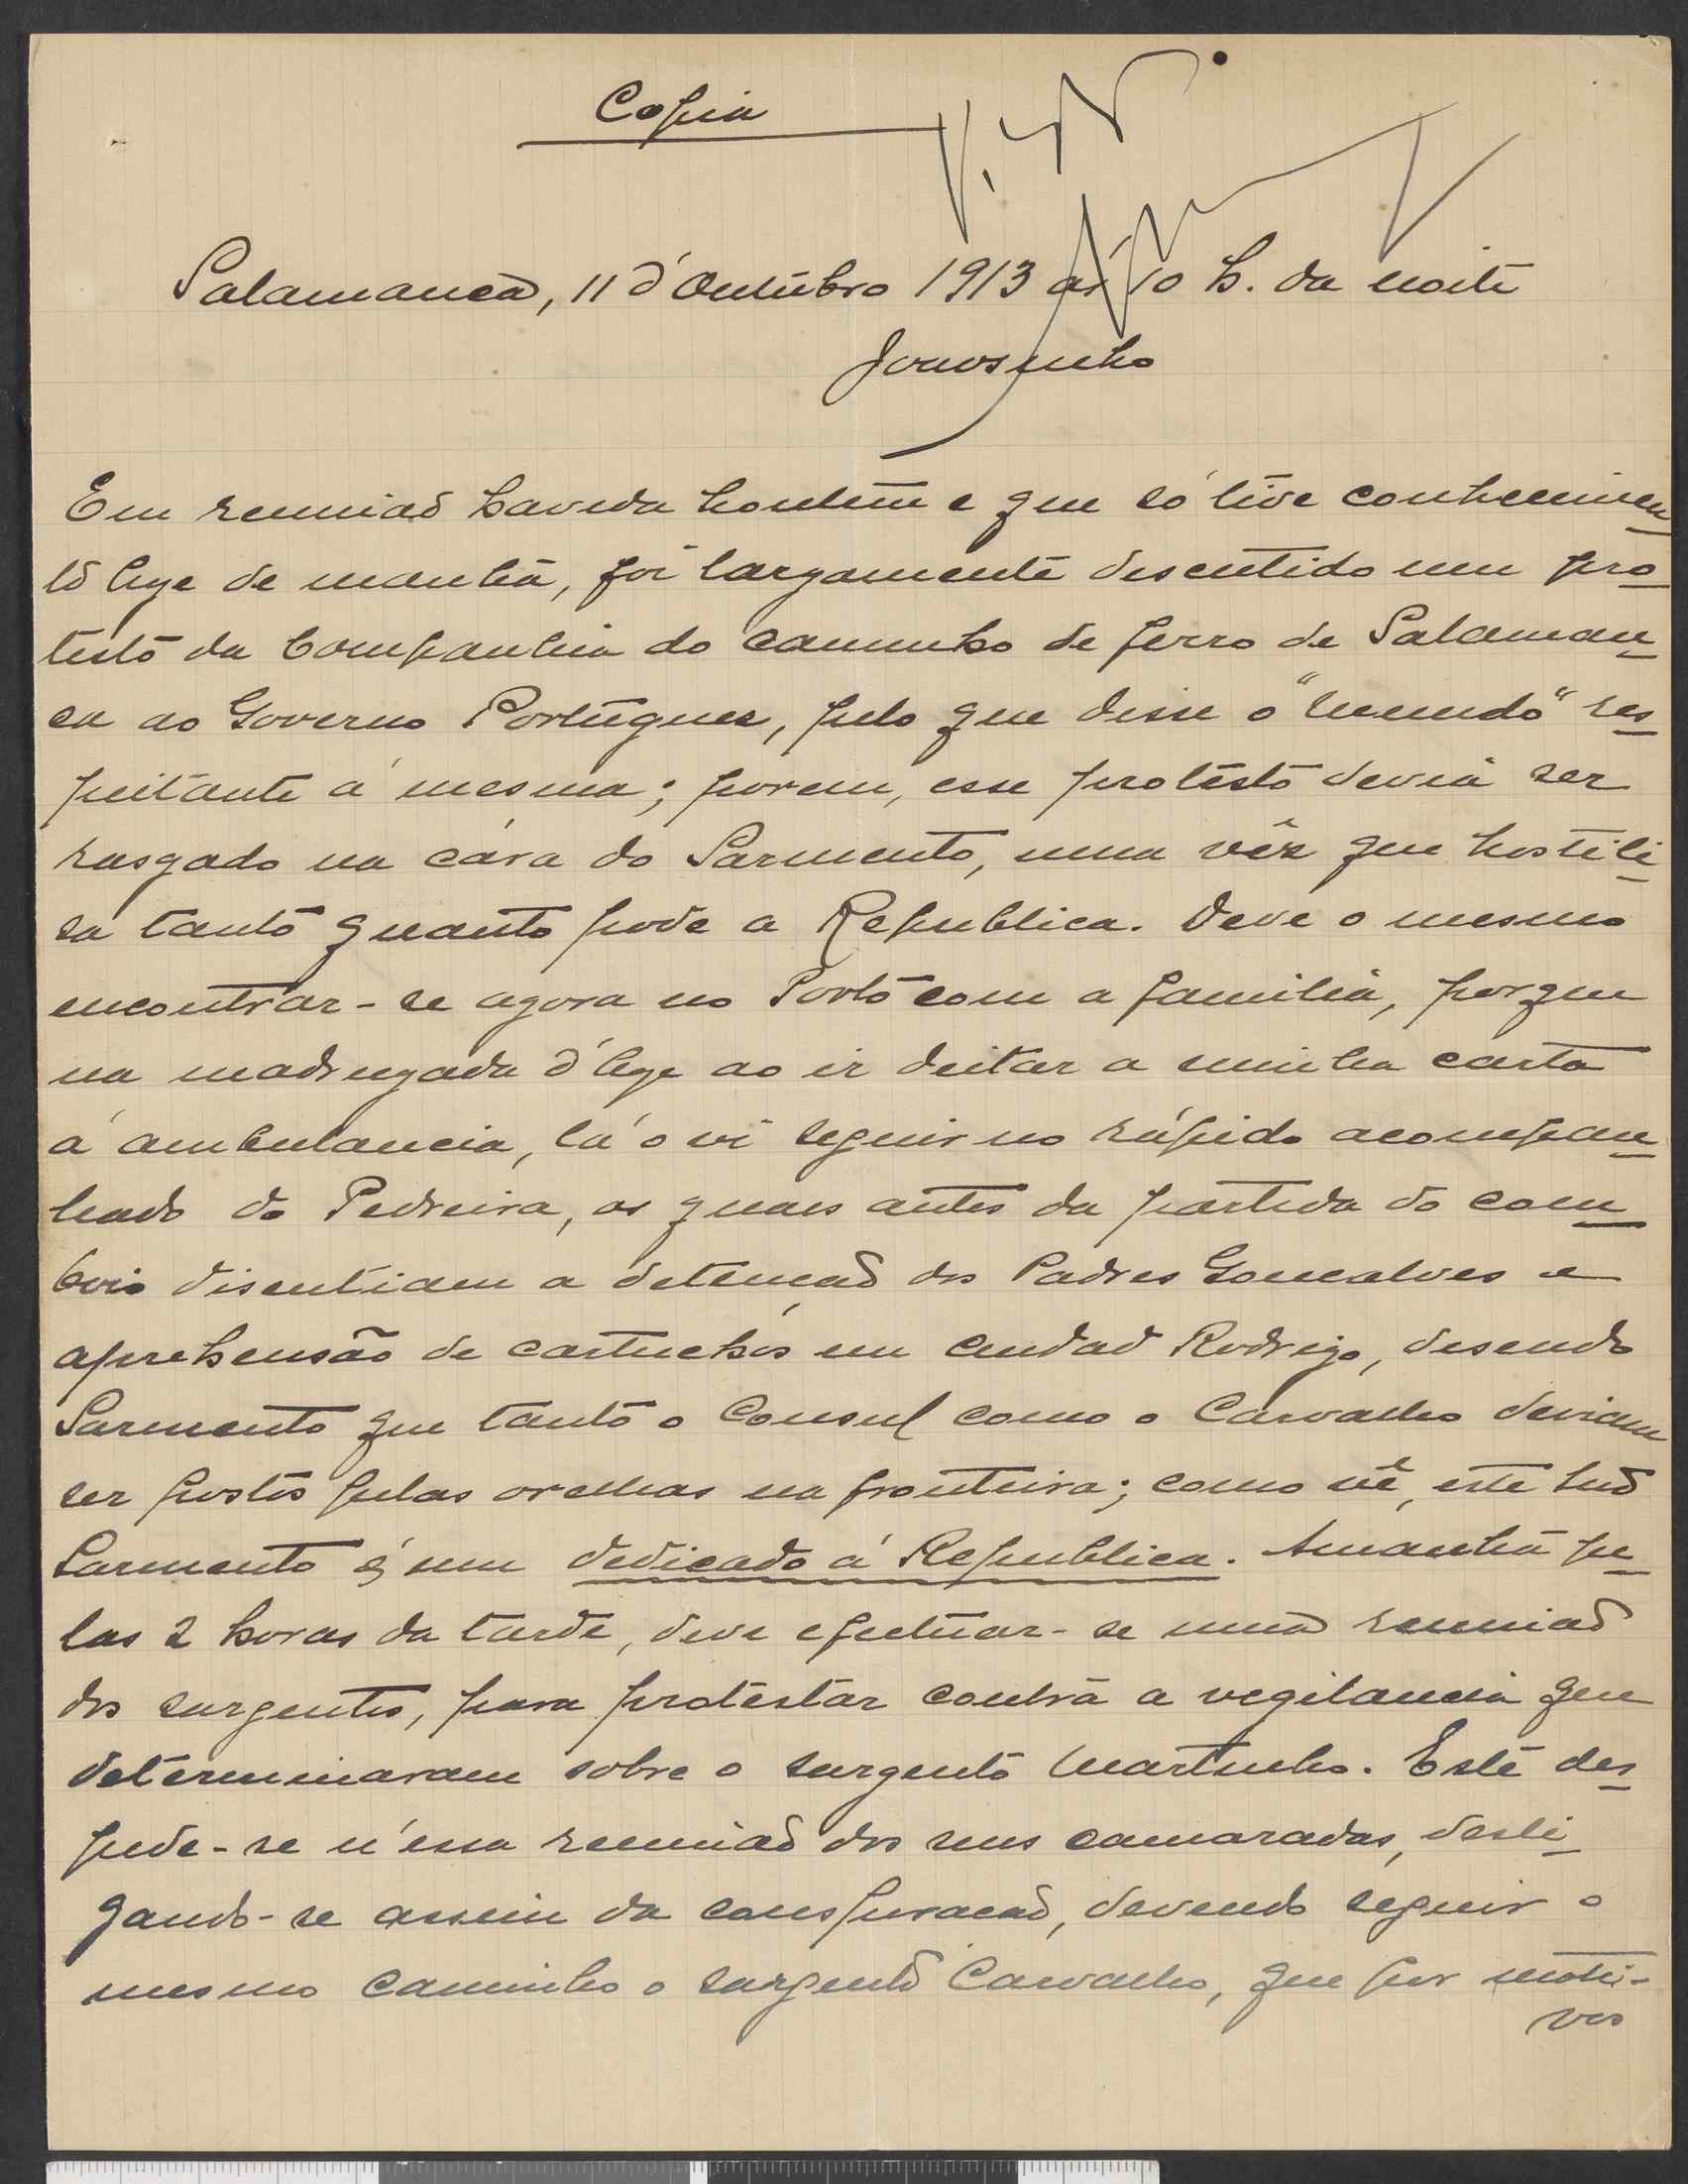 Copia
Salamanca, 11 d'Outubro 1913 ás 10 h. da noite
Em reunião havida hontem e que só tive conhecimen
to hoje de manhã, foi largamente discutido um pro
testo da Companhia do caminho de ferro de Salaman
ca ao Governo Portuguez, pelo que disse o "Mundo" res
peitante á mesma; porem, esse protesto devia ser
rasgado na cára do Sarmento, uma vêz que hostili
sa tanto quanto pode a Republica. Deve o mesmo
encontrar-se agora no Porto com a familia, porque
na madrugada d'hoje ao ir deitar a minha carta
á ambulancia, lá o vi seguir no rápido acompan
hado do Pedreira, os quaes antes da partida do com
boio discutiam a detenção dos Padres Goncalves e
aprehensão de cartuchos em Ciudad Rodrigo, disendo
Sarmento que tanto o Consul como o Carvalho deviam
ser postos pelas orelhas na fronteira; como vê, este
Sarmento é um dedicado á Republica. Amanhã pe
las 2 horas da tarde, deve efectuar-se uma reunião
dos sargentos, para protestar contra a vegilancia que
determinaram sobre o sargento Martinho. Este des
pede-se n'essa reunião dos seus camaradas, desli
gando-se assim da conspiração, devendo seguir o
mesmo caminho o sargento Carvalho, que por moti-
vos